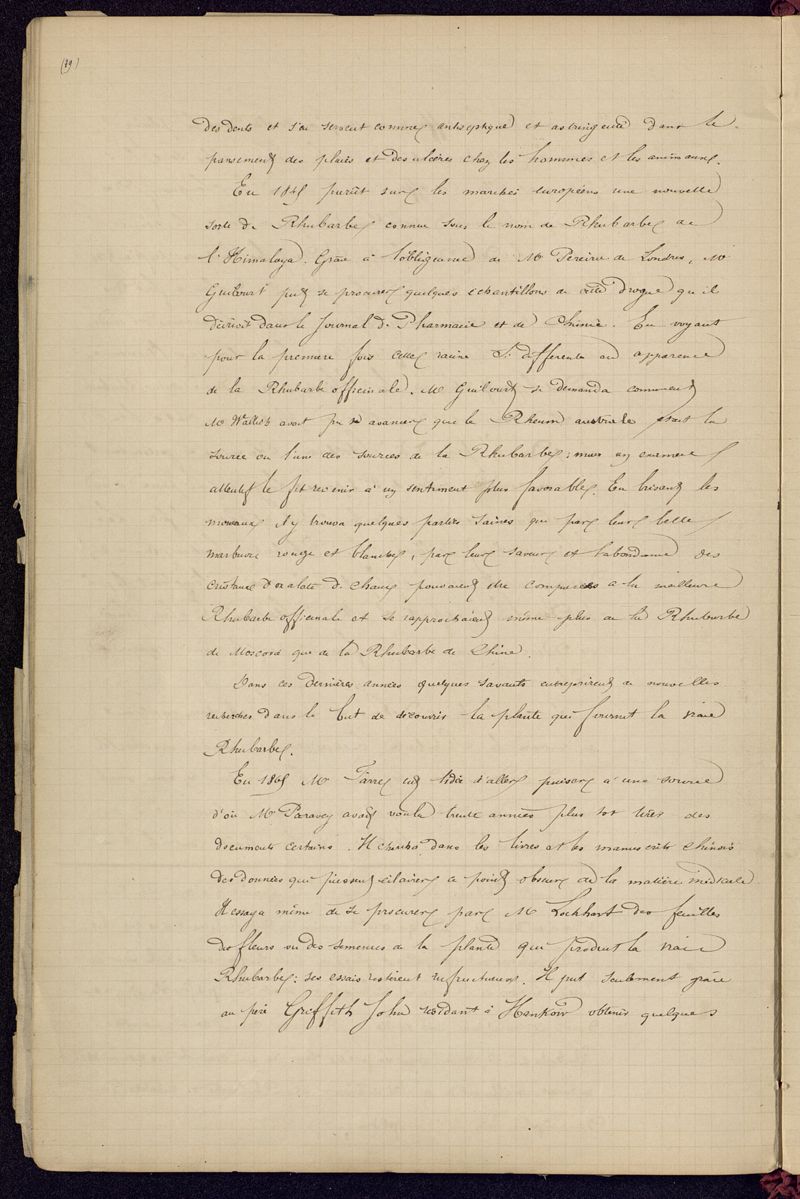 (19)
des dents et s'en servent comme antiseptique et astringente dans le
pansement des plaies et des ulcères chez les hommes et les animaux.
En 184 parût sur les marchés européens une nouvelle
sorte de Rhubarbe connue sous le nom de Rhubarbe de
l'Himalaya. Grâce à l'obligeance de Mr Pereira de Londres, Mr
Guibourt put se procurer quelques échantillons de cette drogue qu'il
décrivit dans le Journal de Pharmacie et de Chimie. En voyant
pour la première fois cette racine si différente en apparence
de la Rhubarbe officinale, Mr Guibourt se demanda comment
Mr Wallich avait pu se avancer que le Rheum australe était la
source ou l'une des sources de la Rhubarbe; mais un examen
attentif le fit revenir à un sentiment plus favorable. En brisant les
morceaux il y trouva quelques parties saines qui par leur belle
marbrure rouge et blanche, par leur saveur et l'abondance des
cristaux d'oxalate de chaux pouvaient être comparées a la meilleure
Rhubarbe officinale et se rapprochaient même plus de la Rhubarbe
de Moscovie que de la Rhubarbe de Chine.
Dans ces dernières années quelques savants entreprirent de nouvelles
recherches dans le but de découvrir la plante qui fournit la vraie
Rhubarbe.
En 186 Mr Farre eut l'idée d'aller puiser à une source
d'où Mr Paravey avait voulu trente années plus tôt tirer des
documents certains. Il chercha dans les livres et les manuscrits chinois
des données qui puissent éclairer ce point obscur de la matière médicale.
Il essaya même de se procurer par Mr Lockhart des feuilles
des fleurs ou des semences de la plante qui produit la vraie
Rhubarbe; ses essais restèrent infructueux. Il put seulement grâce
au père Griffith John résidant à Hankow obtenir quelques